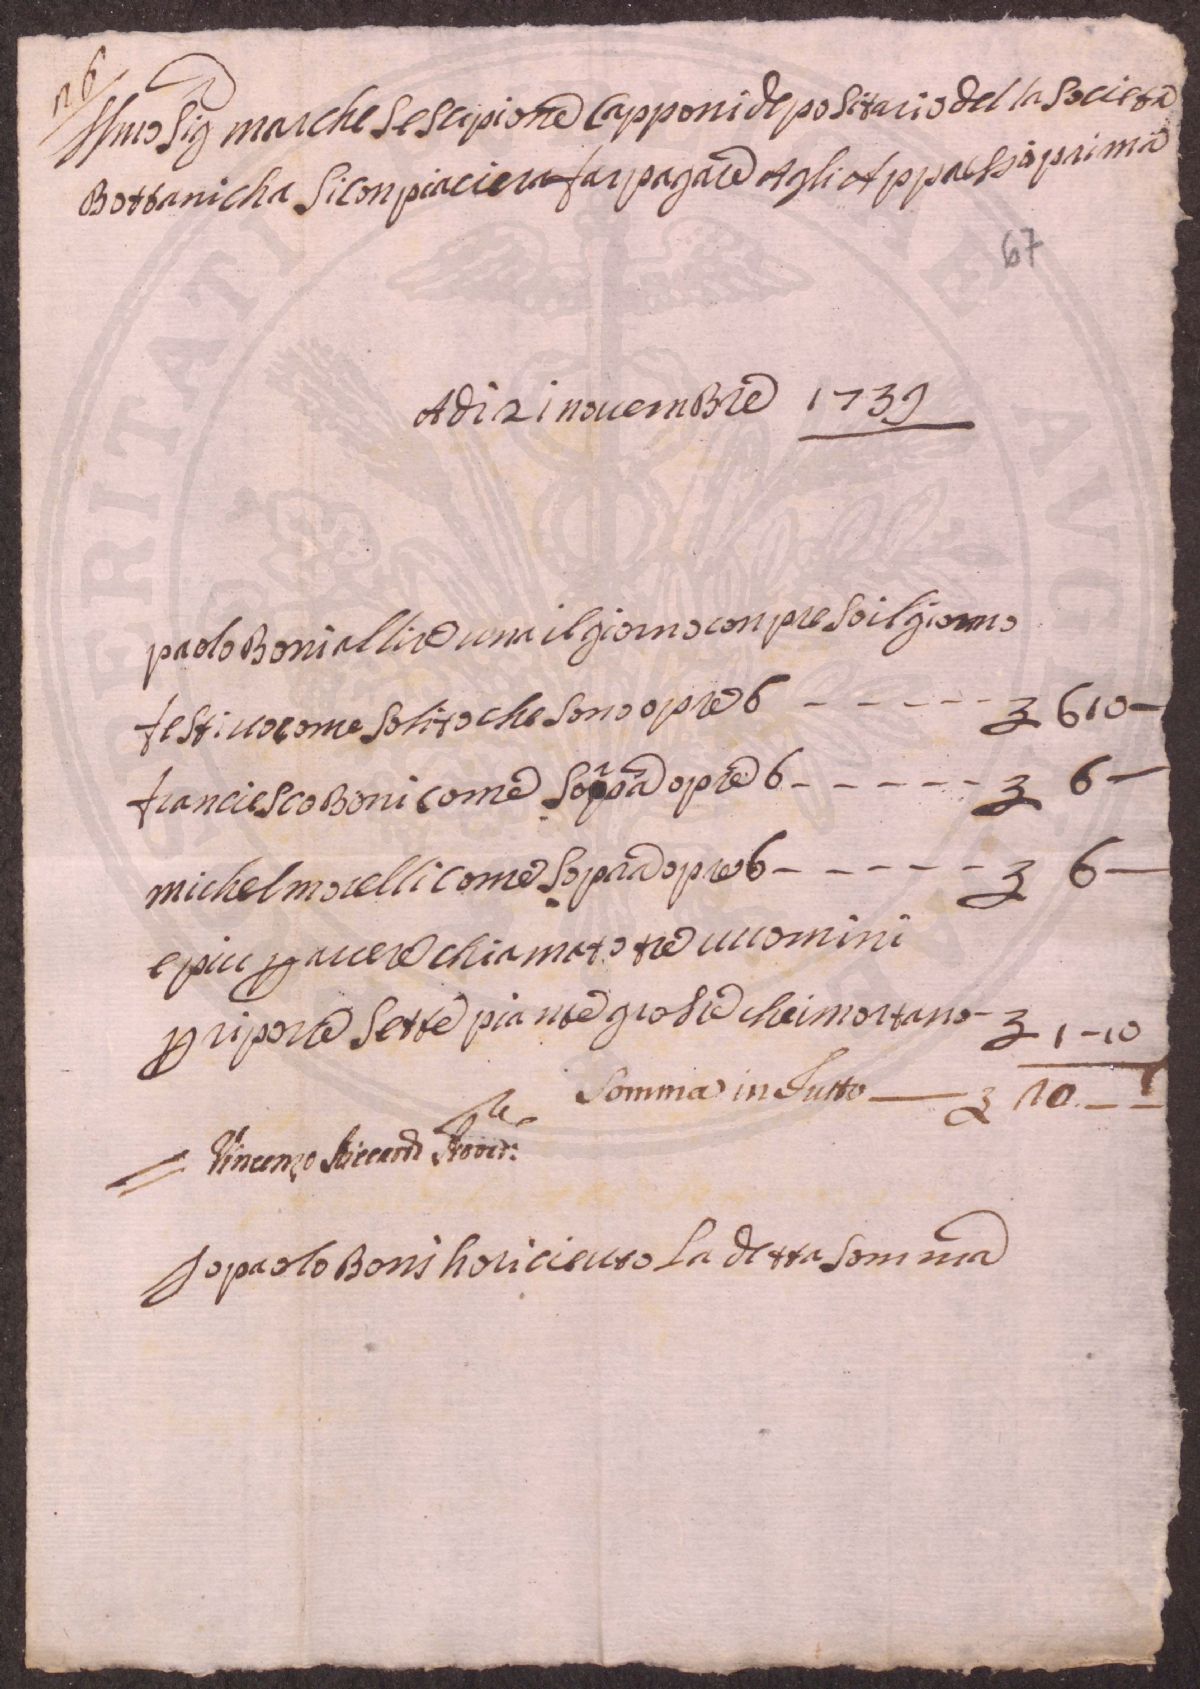 n 6
Jllmo Sig marchese Scipione Capponi depositario della Societa
Bottanicha Si Con piaciera far pagare Agli Appressi prima
67
Adi 21 novembre 1739
paolo Boni a llire una il giorno con preso il giorno
festivo come solito che sono opre 6 - - - - - £ 6 10 -
franciesco Boni come Sopra opre 6 - - - - - - £ 6 -
michel morelli come Sopra opre 6 - - - - - - £ 6 -
e piu p avere chiamato tre uuomini
p riporre Sette piante grosse che imortano - £ 1 - 10
Somma in Tutto — £ 20 - -
Vincenzo Riccardi Provre
Jo paolo Boni ho ricieuto La detta Somma
VERITATI